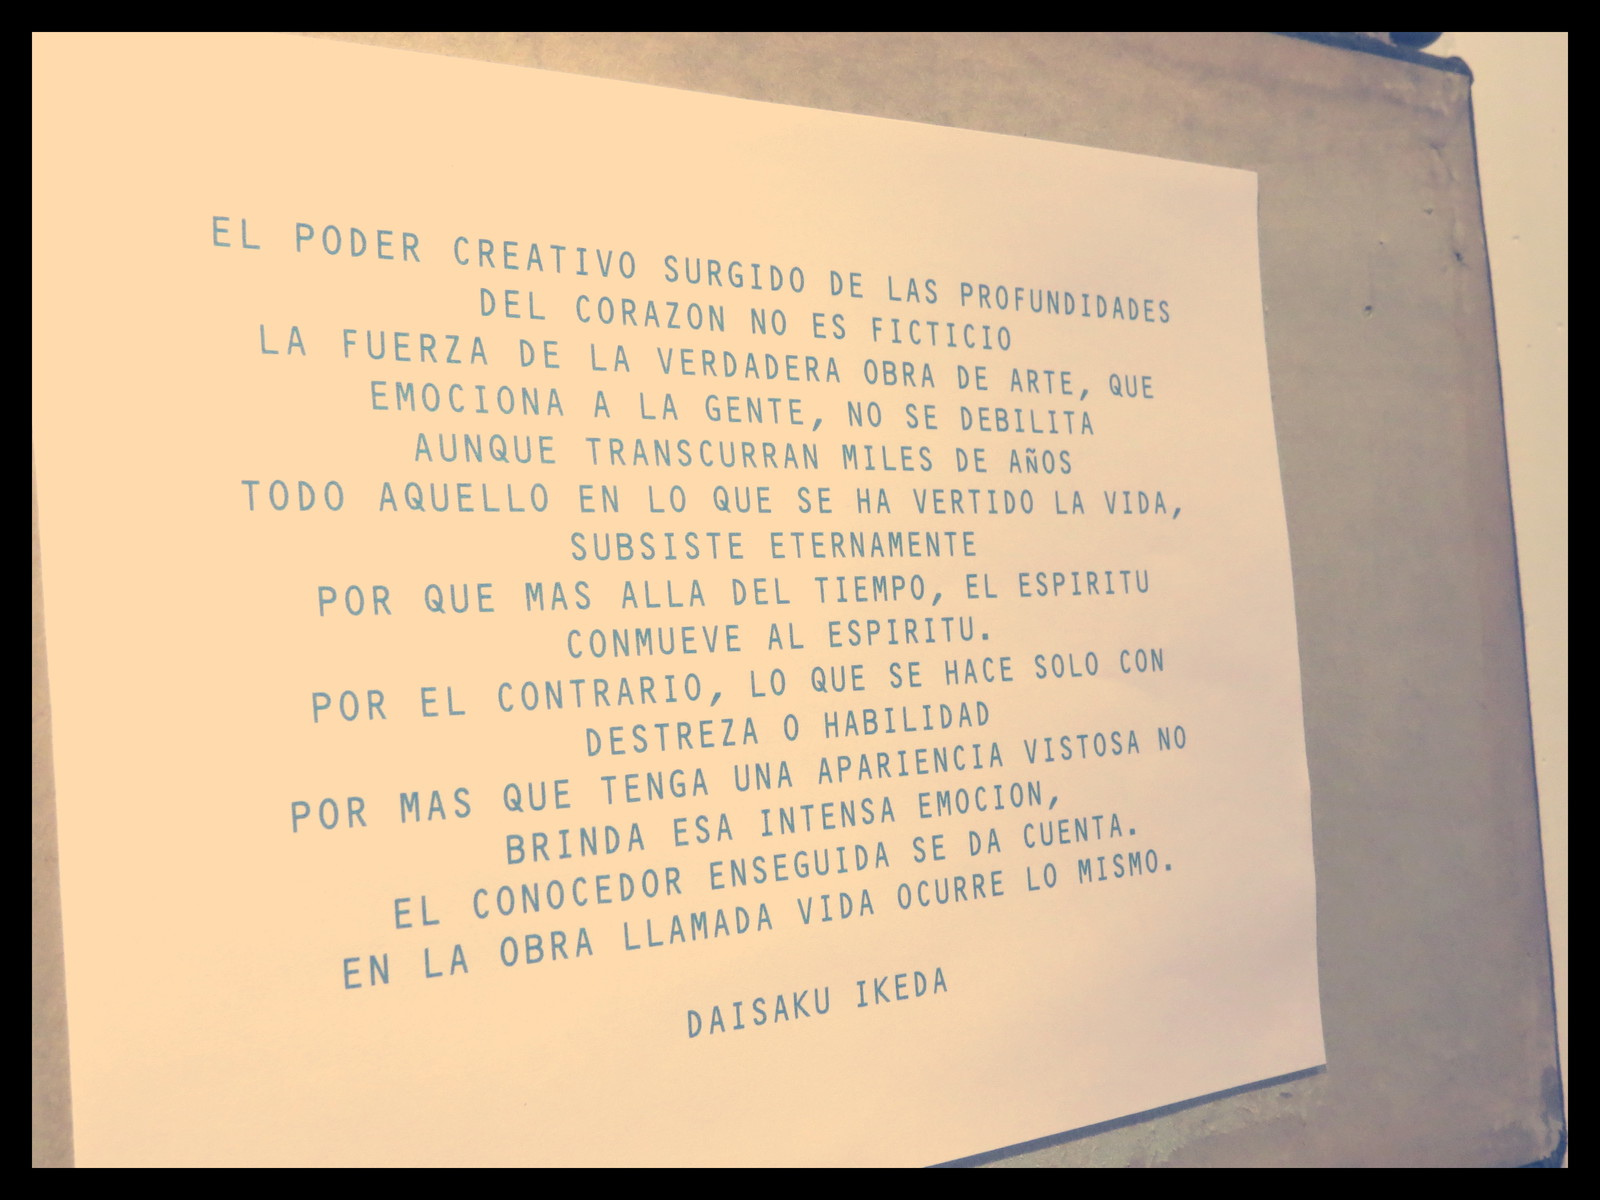 EL PODER CREATIVO SURGIDO DE LAS PROFUNDIDADES
DEL CORAZON NO ES FICTICIO
LA FUERZA DE LA VERDADERA OBRA DE ARTE, QUE
EMOCIONA A LA GENTE, NO SE DEBILITA
AUNQUE TRANSCURRAN MILES DE AÑOS
TODO AQUELLO EN LO QUE SE HA VERTIDO LA VIDA,
SUBSISTE ETERNAMENTE
POR QUE MAS ALLA DEL TIEMPO, EL ESPIRITU
CONMUEVE AL ESPIRITU.
POR EL CONTRARIO, LO QUE SE HACE SOLO CON
DESTREZA O HABILIDAD
POR MAS QUE TENGA UNA APARIENCIA VISTOSA NO
BRINDA ESA INTENSA EMOCION,
EL CONOCEDOR ENSEGUIDA SE DA CUENTA.
EN LA OBRA LLAMADA VIDA OCURRE LO MISMO.
DAISAKU IKEDA